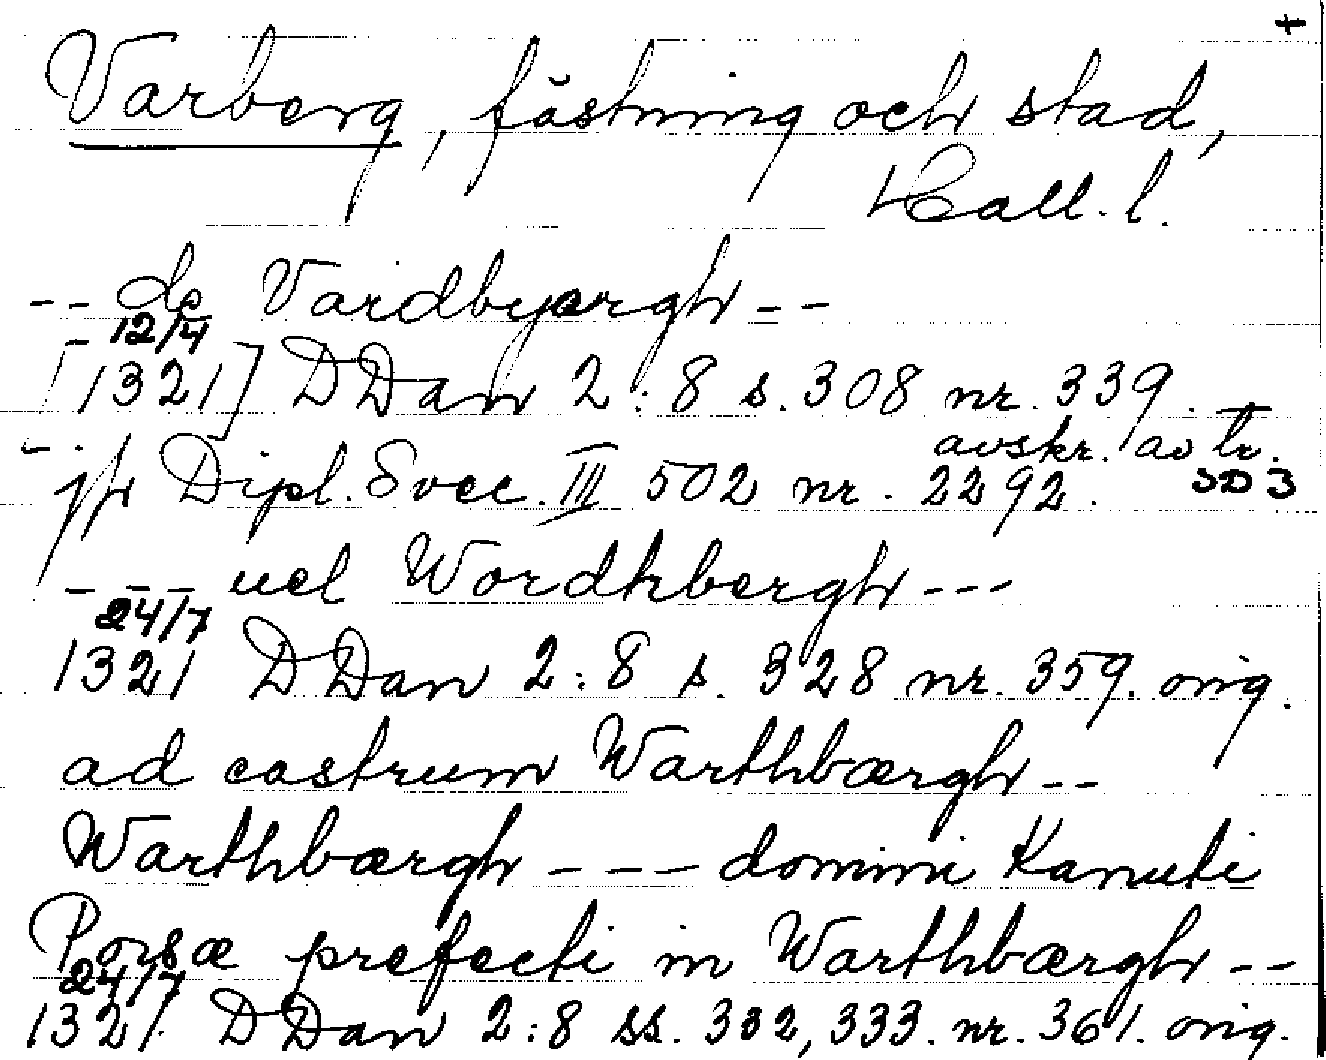 +
Varberg, fästning och stad,
Hall. l.
-- de Vardbyærgh --
12/4
[1321] DDan 2:8 s. 308 nr. 339.
avskr. av tr.
jfr Dipl. Svec. III 502 nr. 2292. SD 3
--- uel Wordhbergh ---
24/7
1321 DDan 2:8 s. 328 nr. 359. orig.
ad castrum Warthbærgh --
Warthbærgh --- domini Kanuti
Porsæ prefecti in Warthbærgh --
24/7
1321. DDan 2:8 ss. 332, 333. nr. 361. orig.